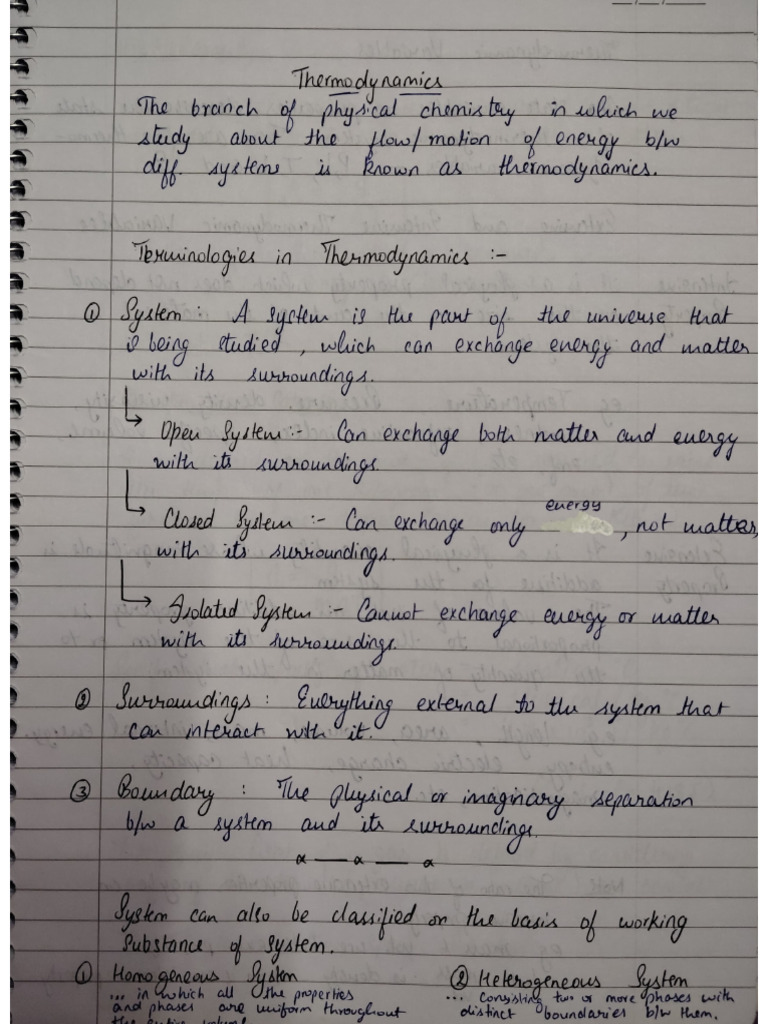 Thermodynamics
The branch of physical chemistry in which we
study about the flow/motion of energy b/w
diff. systems is known as thermodynamics.
Terminologies in Thermodynamics :-
① System : A system is the part of the universe that
is being studied, which can exchange energy and matter
with its surroundings.
Open System :- Can exchange both matter and energy
with its surroundings.
Closed System :- Can exchange only energy, not matter,
with its surroundings.
Isolated System :- Cannot exchange energy or matter
with its surroundings.
② Surroundings : Everything external to the system that
can interact with it.
③ Boundary : The physical or imaginary separation
b/w a system and its surroundings.
α — α — α
System can also be classified on the basis of working
substance of system.
① Homogeneous System ② Heterogeneous System
... in which all the properties ... consisting two or more phases with
and phases are uniform throughout distinct boundaries b/w them.
the entire volume